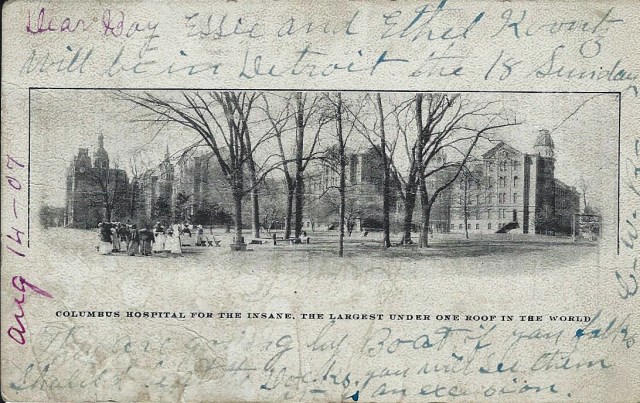 Dear Boy Essie and Ethel Koontz
will be in Detroit the 18 Sunday
Aug 14-07
COLUMBUS HOSPITAL FOR THE INSANE, THE LARGEST UNDER ONE ROOF IN THE WORLD
They are going by Boat if you folks
should be at Docks, you will see them
it is an excursion.